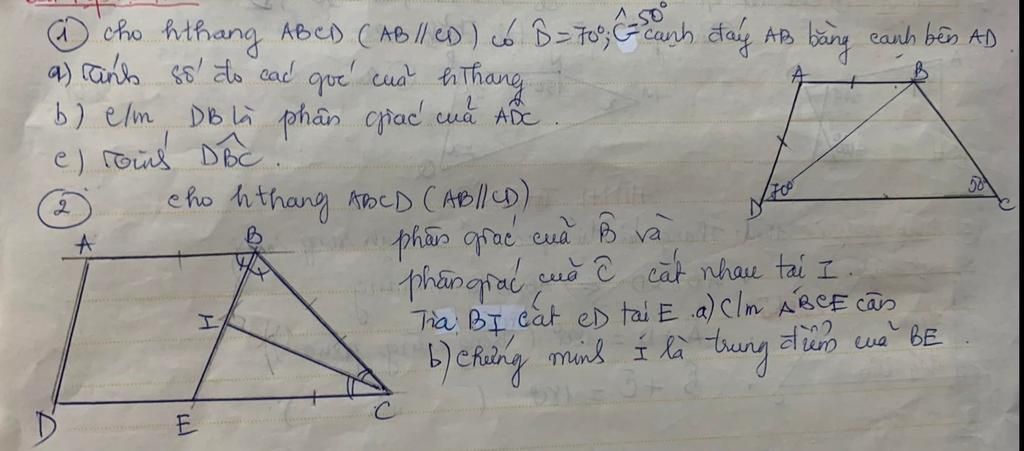 ① cho hthang ABCD (AB // CD) có D̂ = 70°; Ĉ = 50° cạnh đáy AB bằng cạnh bên AD
a) Tính số đo các góc của hthang
b) c/m DB là phân giác của ADC.
c) Tính DBC.
A
B
70°
50°
D
C
② cho hthang ABCD (AB // CD)
phân giác của B̂ và
phân giác của Ĉ cắt nhau tại I.
Tia BI cắt CD tại E. a) C/m ΔBCE cân
b) chứng minh I là trung điểm của BE.
A
B
I
D
E
C